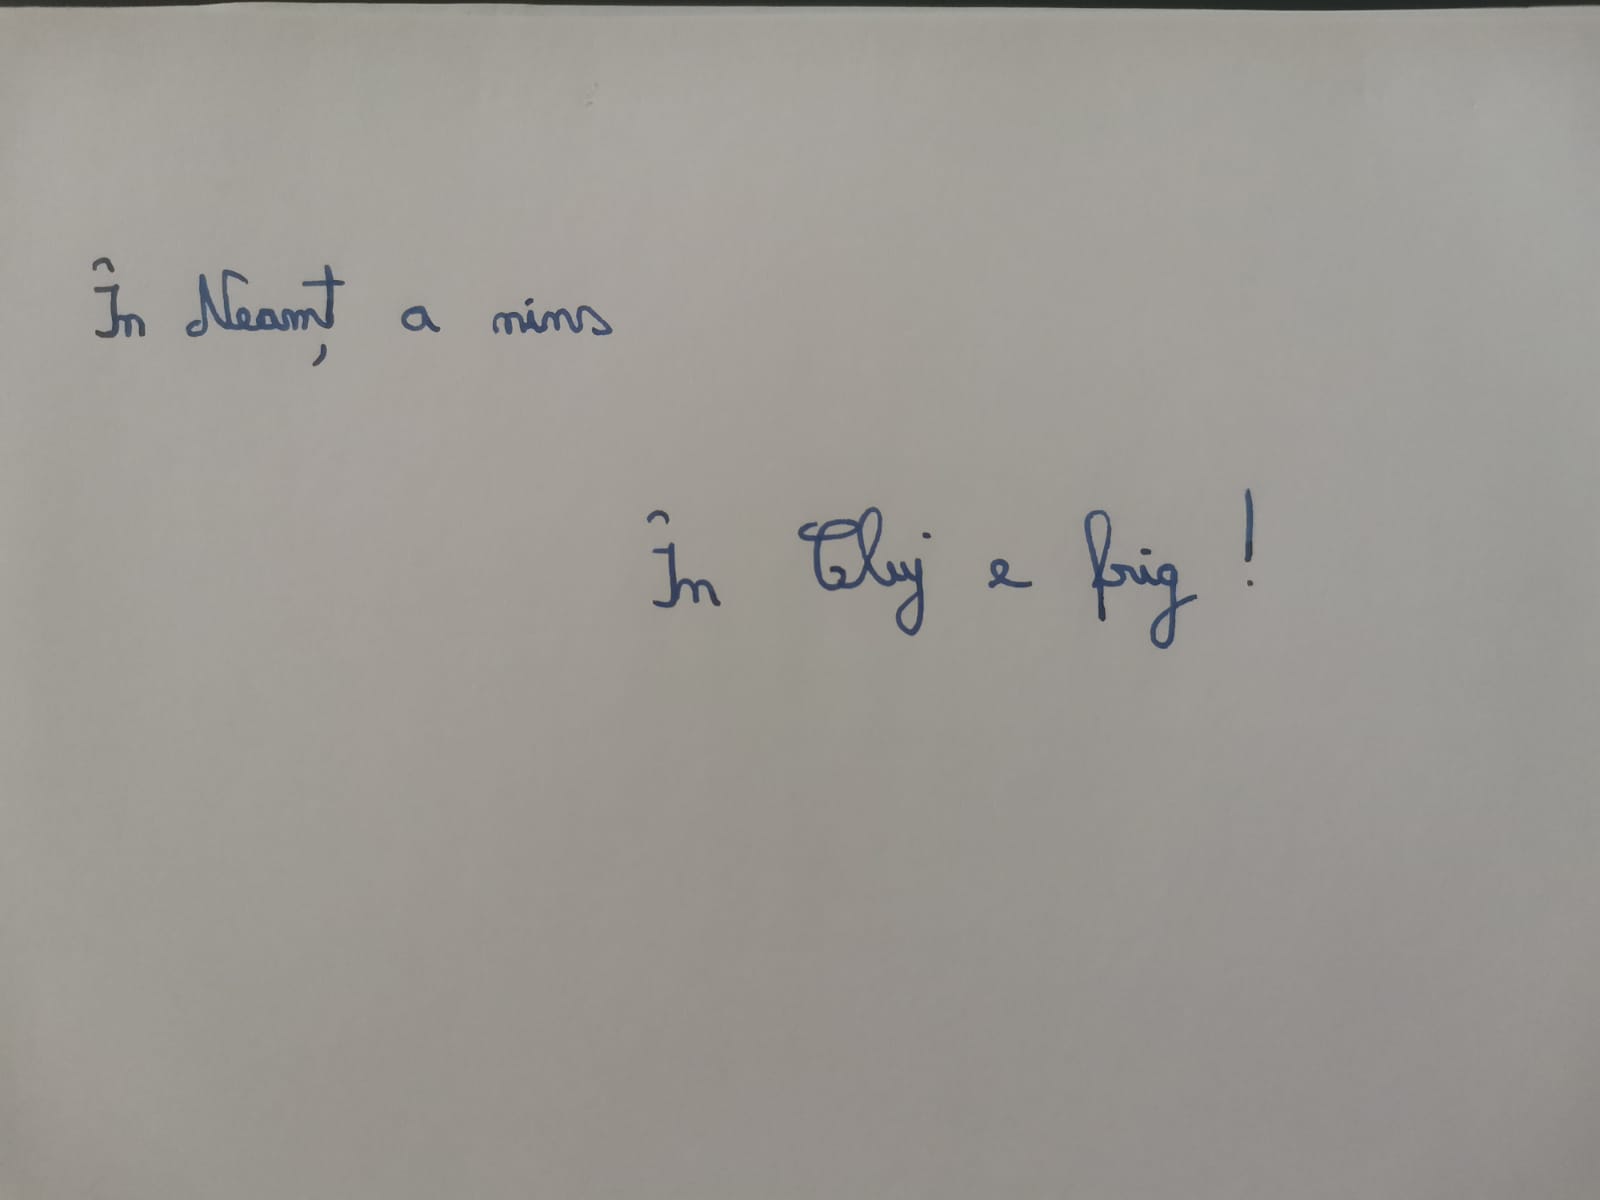 În Neamț a nins
În Cluj e frig!